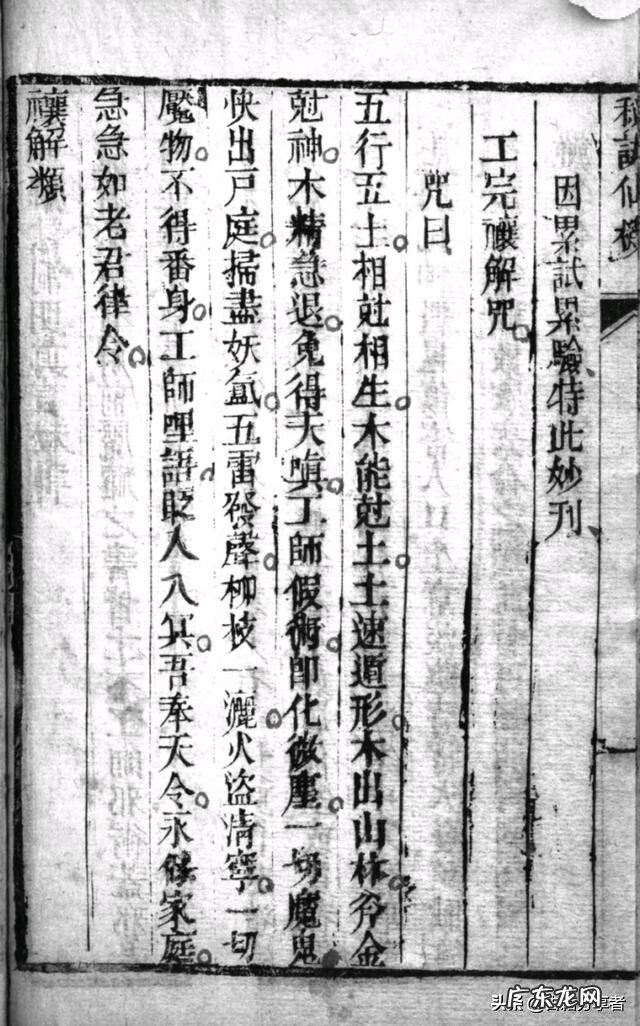 秘訣仙機
因累試累驗特此妙刊
工完禳解咒
咒曰
五行五土相尅相生木能尅土土速遁形木出山林斧金
尅神木精急退免得天嗔工師假術即化微塵一切魔鬼
快出戸庭掃盡妖氣五雷發聲柳枝一灑火盜清寧一切
魘物不得番身工師哩語貶入八冥吾奉天令永保家庭
急急如老君律令
禳解類
广东龙网